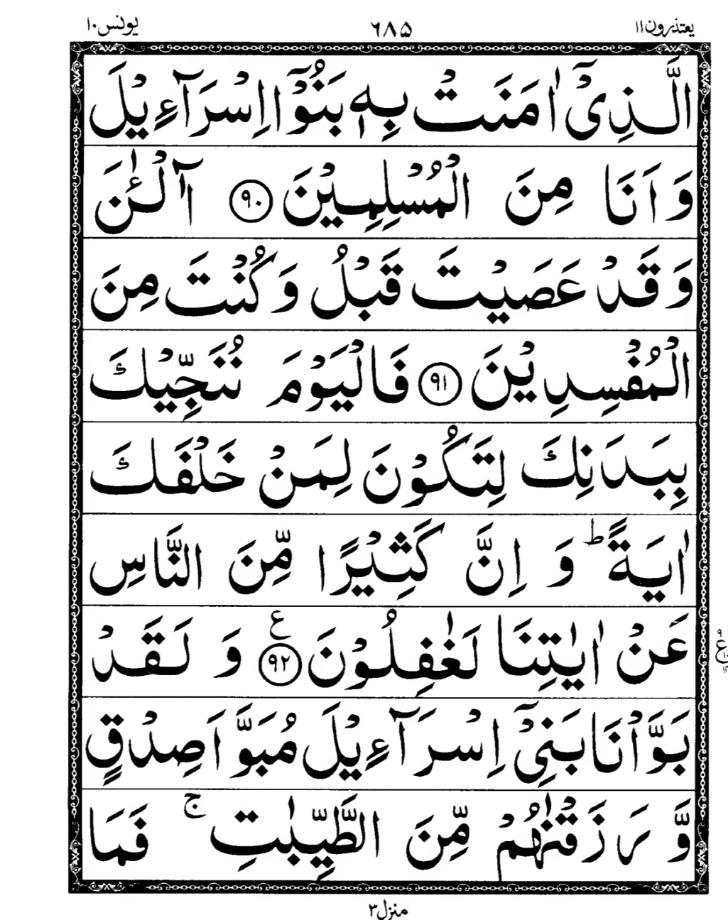 یعتذرون۱۱ ۶۸۵ یونس۱۰
الَّذِیْۤ اٰمَنَتْ بِهٖ بَنُوْۤا اِسْرَآءِیْلَ
وَ اَنَا مِنَ الْمُسْلِمِیْنَ ﴿۹۰﴾ آٰلْـٰٔنَ
وَ قَدْ عَصَیْتَ قَبْلُ وَ كُنْتَ مِنَ
الْمُفْسِدِیْنَ ﴿۹۱﴾ فَالْیَوْمَ نُنَجِّیْكَ
بِبَدَنِكَ لِتَكُوْنَ لِمَنْ خَلْفَكَ
اٰیَةً ؕ وَ اِنَّ كَثِیْرًا مِّنَ النَّاسِ
عَنْ اٰیٰتِنَا لَغٰفِلُوْنَ ﴿۹۲﴾ ع وَ لَقَدْ
بَوَّاْنَا بَنِیْۤ اِسْرَآءِیْلَ مُبَوَّاَ صِدْقٍ
وَّ رَزَقْنٰهُمْ مِّنَ الطَّیِّبٰتِ ۚ فَمَا
منزل۳